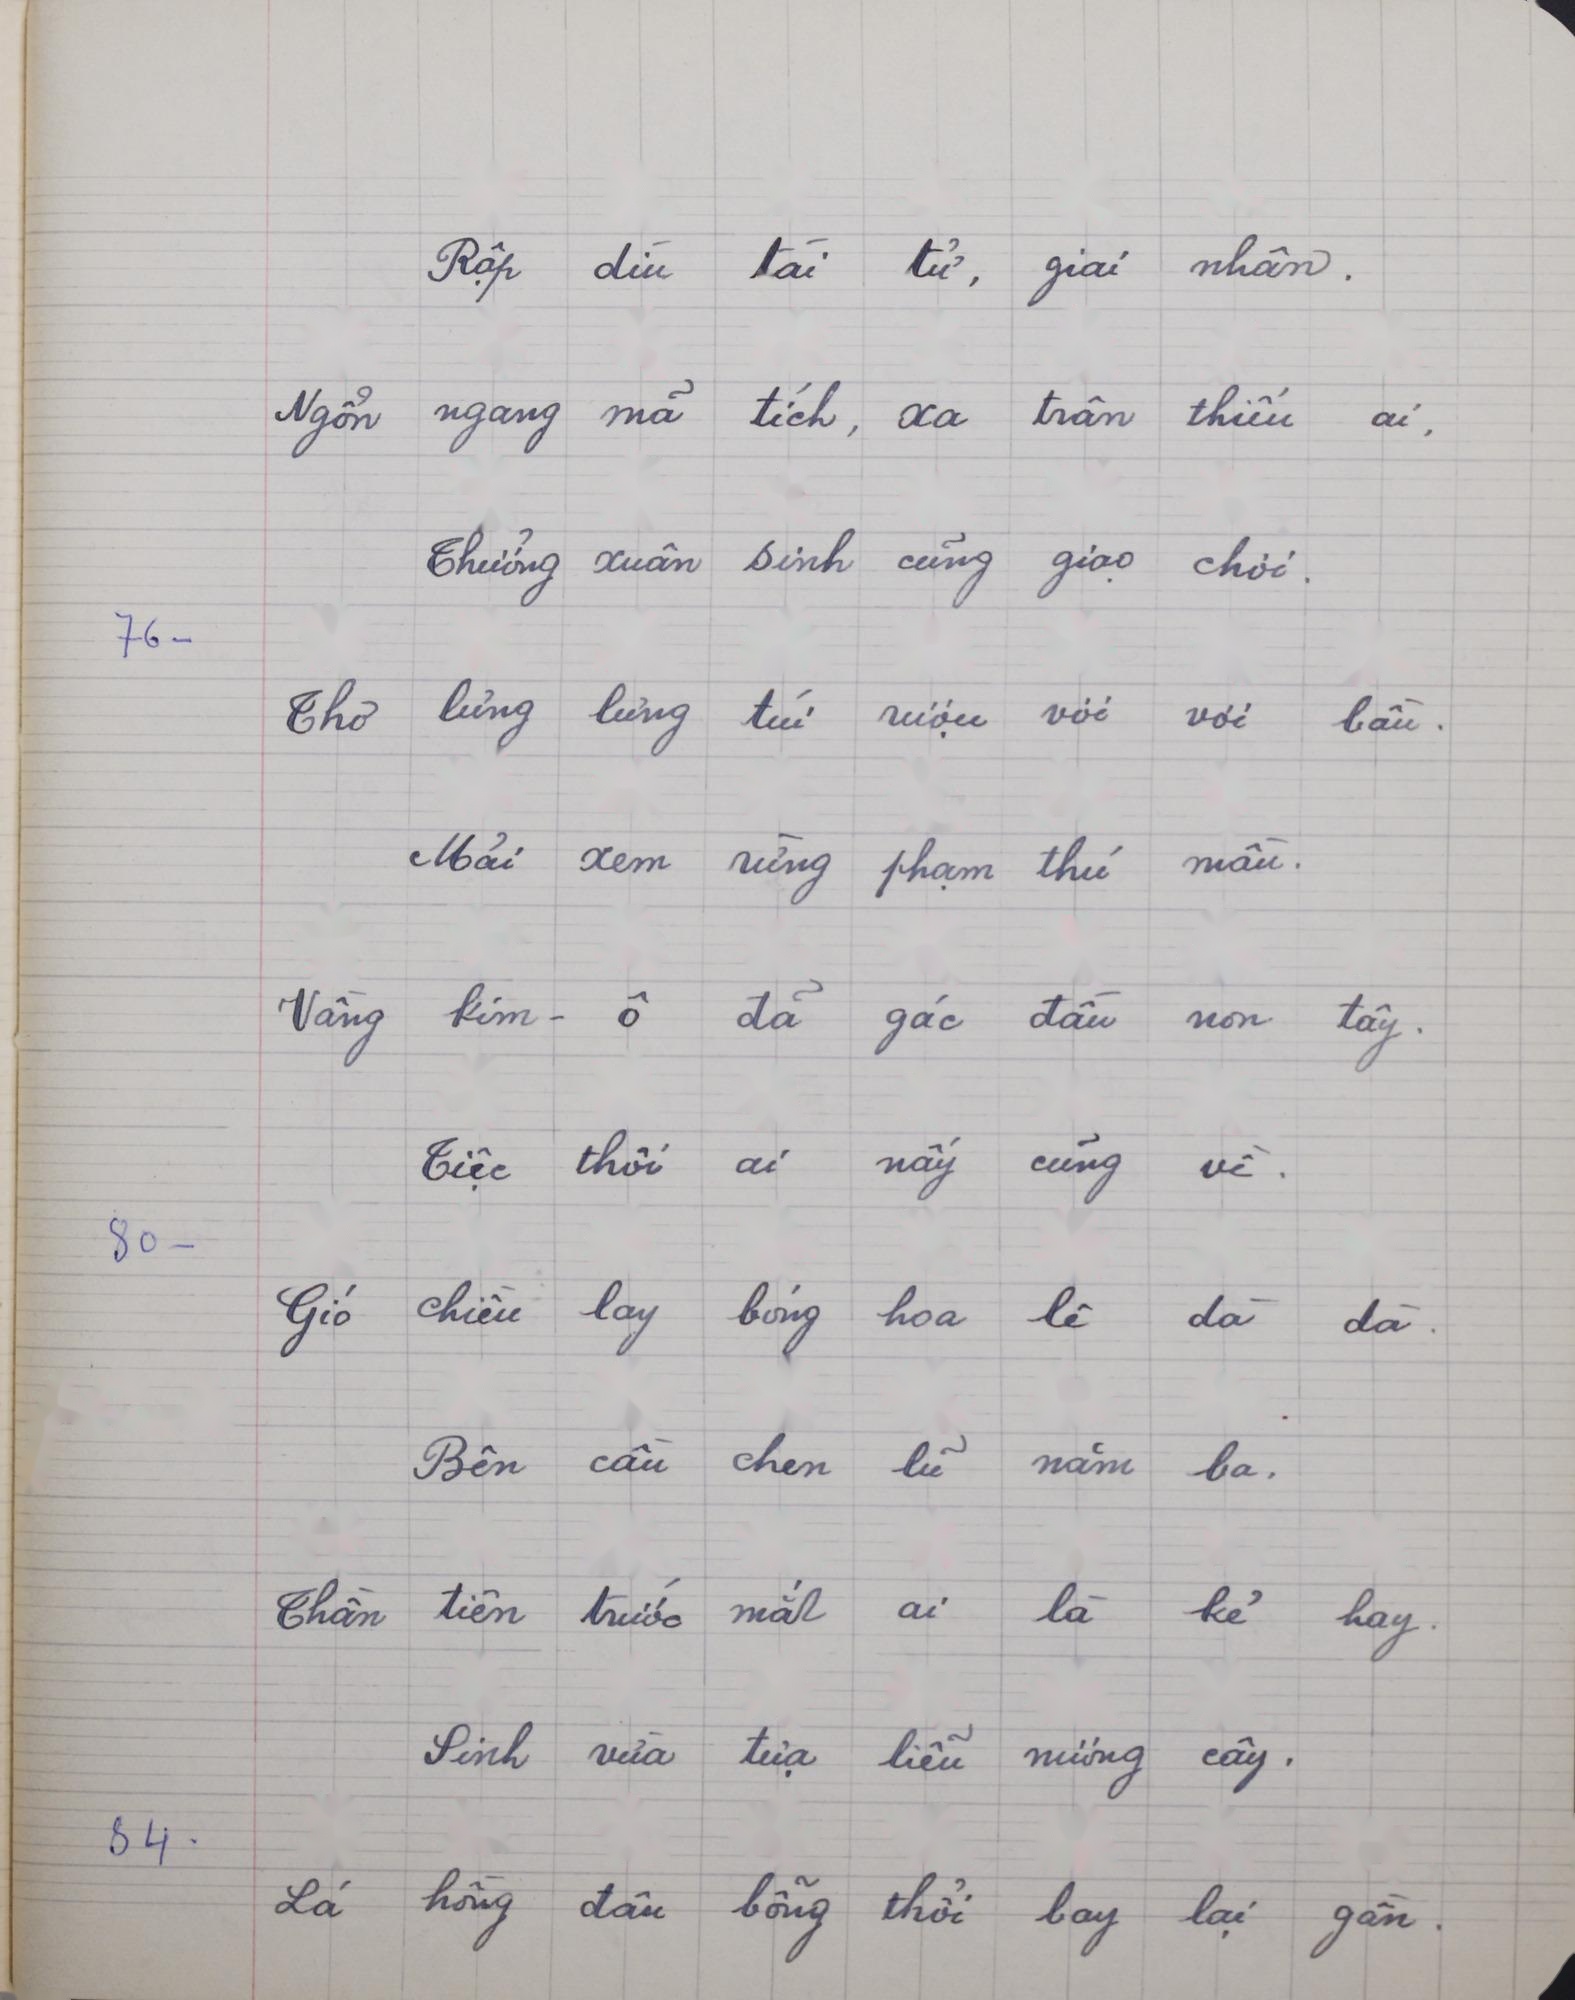 Rập dìu tài tử, giai nhân.
Ngổn ngang mã tích, xa trần thiếu ai.
Thưởng xuân sinh cũng giạo chơi.
76-
Thơ lưng lưng túi rượu vơi vơi bầu.
Mải xem rừng phạm thú mầu.
Vầng kim-ô đã gác đầu non tây.
Tiệc thôi ai nấy cũng về.
80-
Gió chiều lay bóng hoa lê dà dà.
Bên cầu chen lũ năm ba.
Thần tiên trước mắt ai là kẻ hay.
Sinh vừa tựa liễu nương cây.
84.
Lá hồng đâu bỗng thổi bay lại gần.